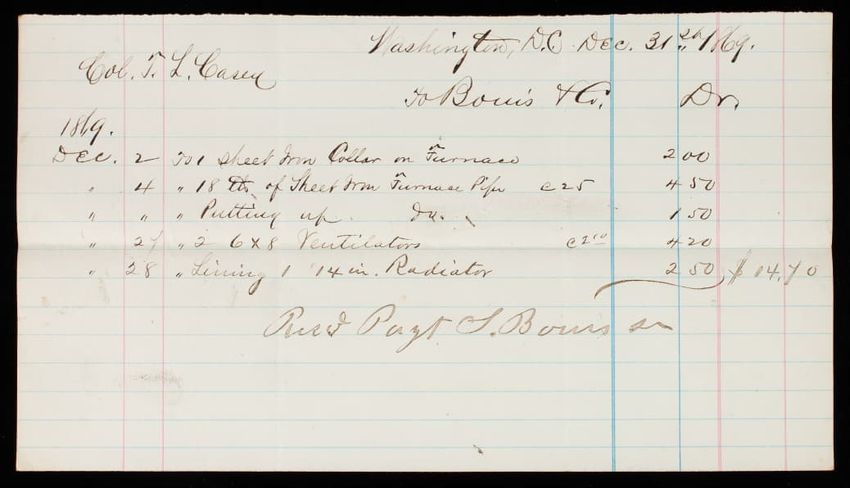 Washington, D.C. Dec. 31st 1869.
Col. T. L. Casey
To Bouis & Co. Dr.
1869.
Dec. 2 To 1 Sheet Iron Collar on Furnace 2 00
" 4 " 18 lbs. of Sheet Iron Furnace Pipe c 25 4 50
" " " Putting up Do. 1 50
" 27 " 2 6x8 Ventilators c 2 10 4 20
" 28 " Lining 1 14 in. Radiator 2 50 $ 14.70
Recd Payt S. Bouis